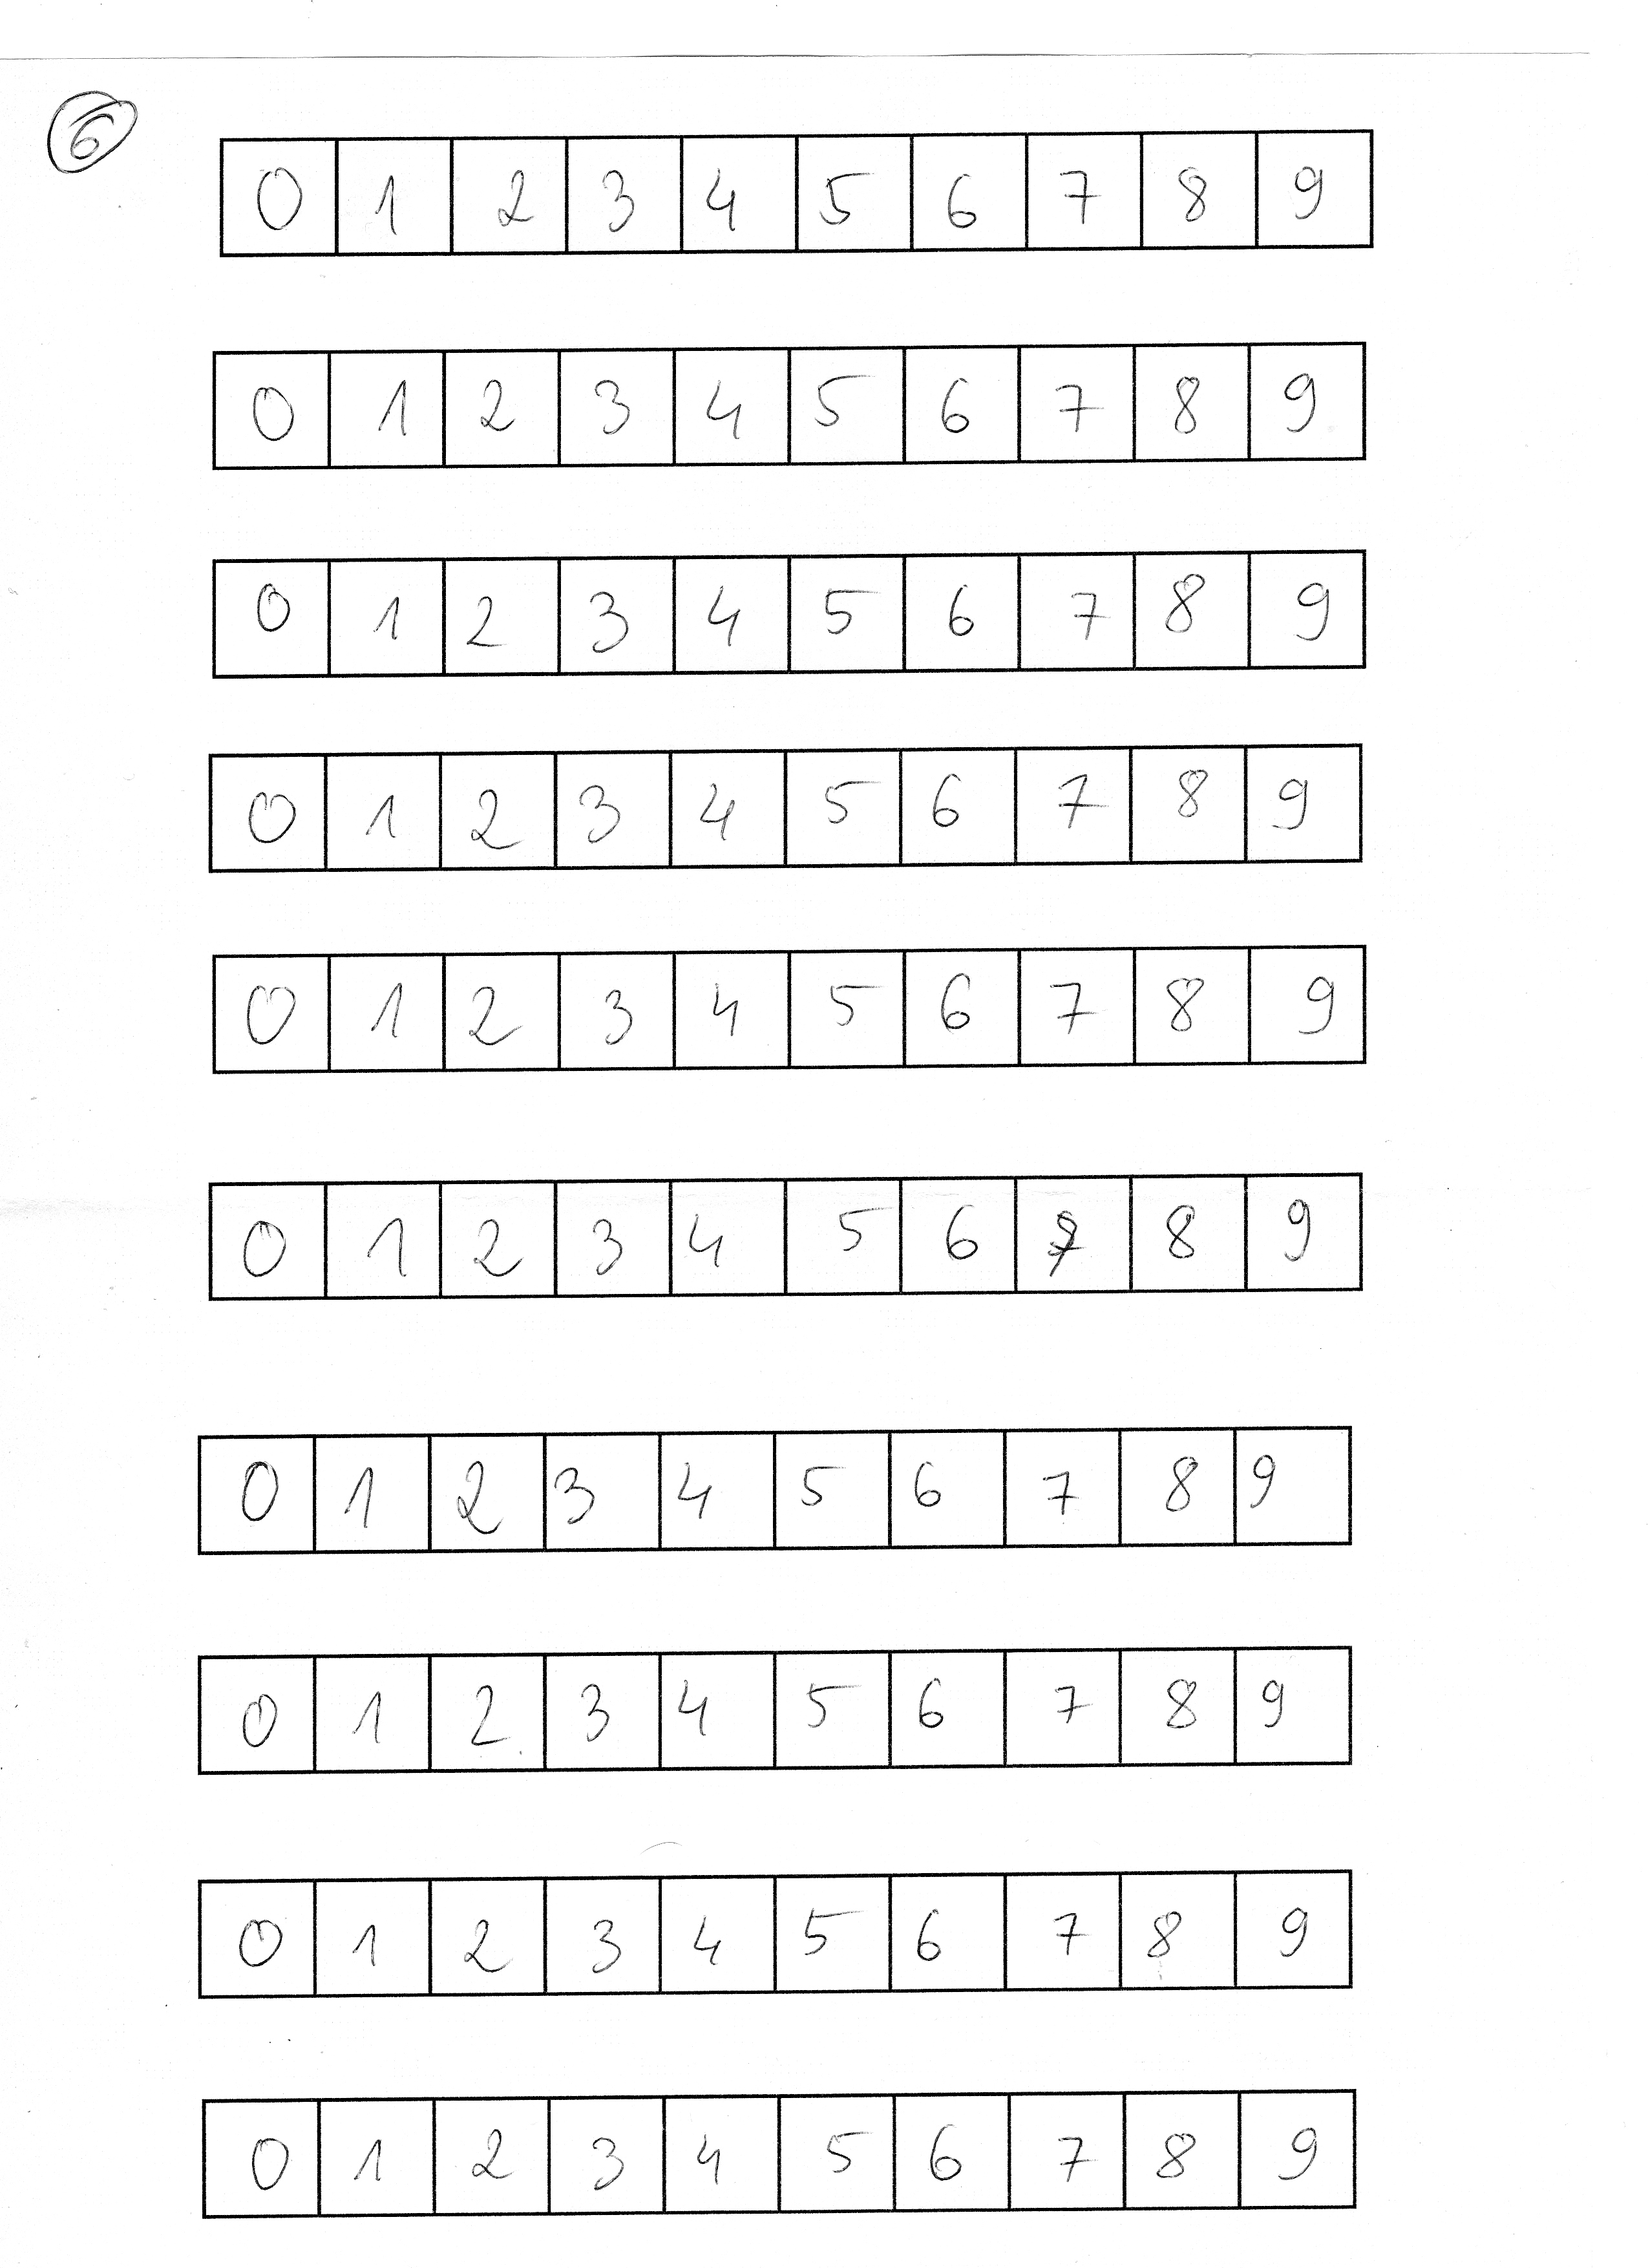 6
0 1 2 3 4 5 6 7 8 9
0 1 2 3 4 5 6 7 8 9
0 1 2 3 4 5 6 7 8 9
0 1 2 3 4 5 6 7 8 9
0 1 2 3 4 5 6 7 8 9
0 1 2 3 4 5 6 8 9
0 1 2 3 4 5 6 7 8 9
0 1 2 3 4 5 6 7 8 9
0 1 2 3 4 5 6 7 8 9
0 1 2 3 4 5 6 7 8 9